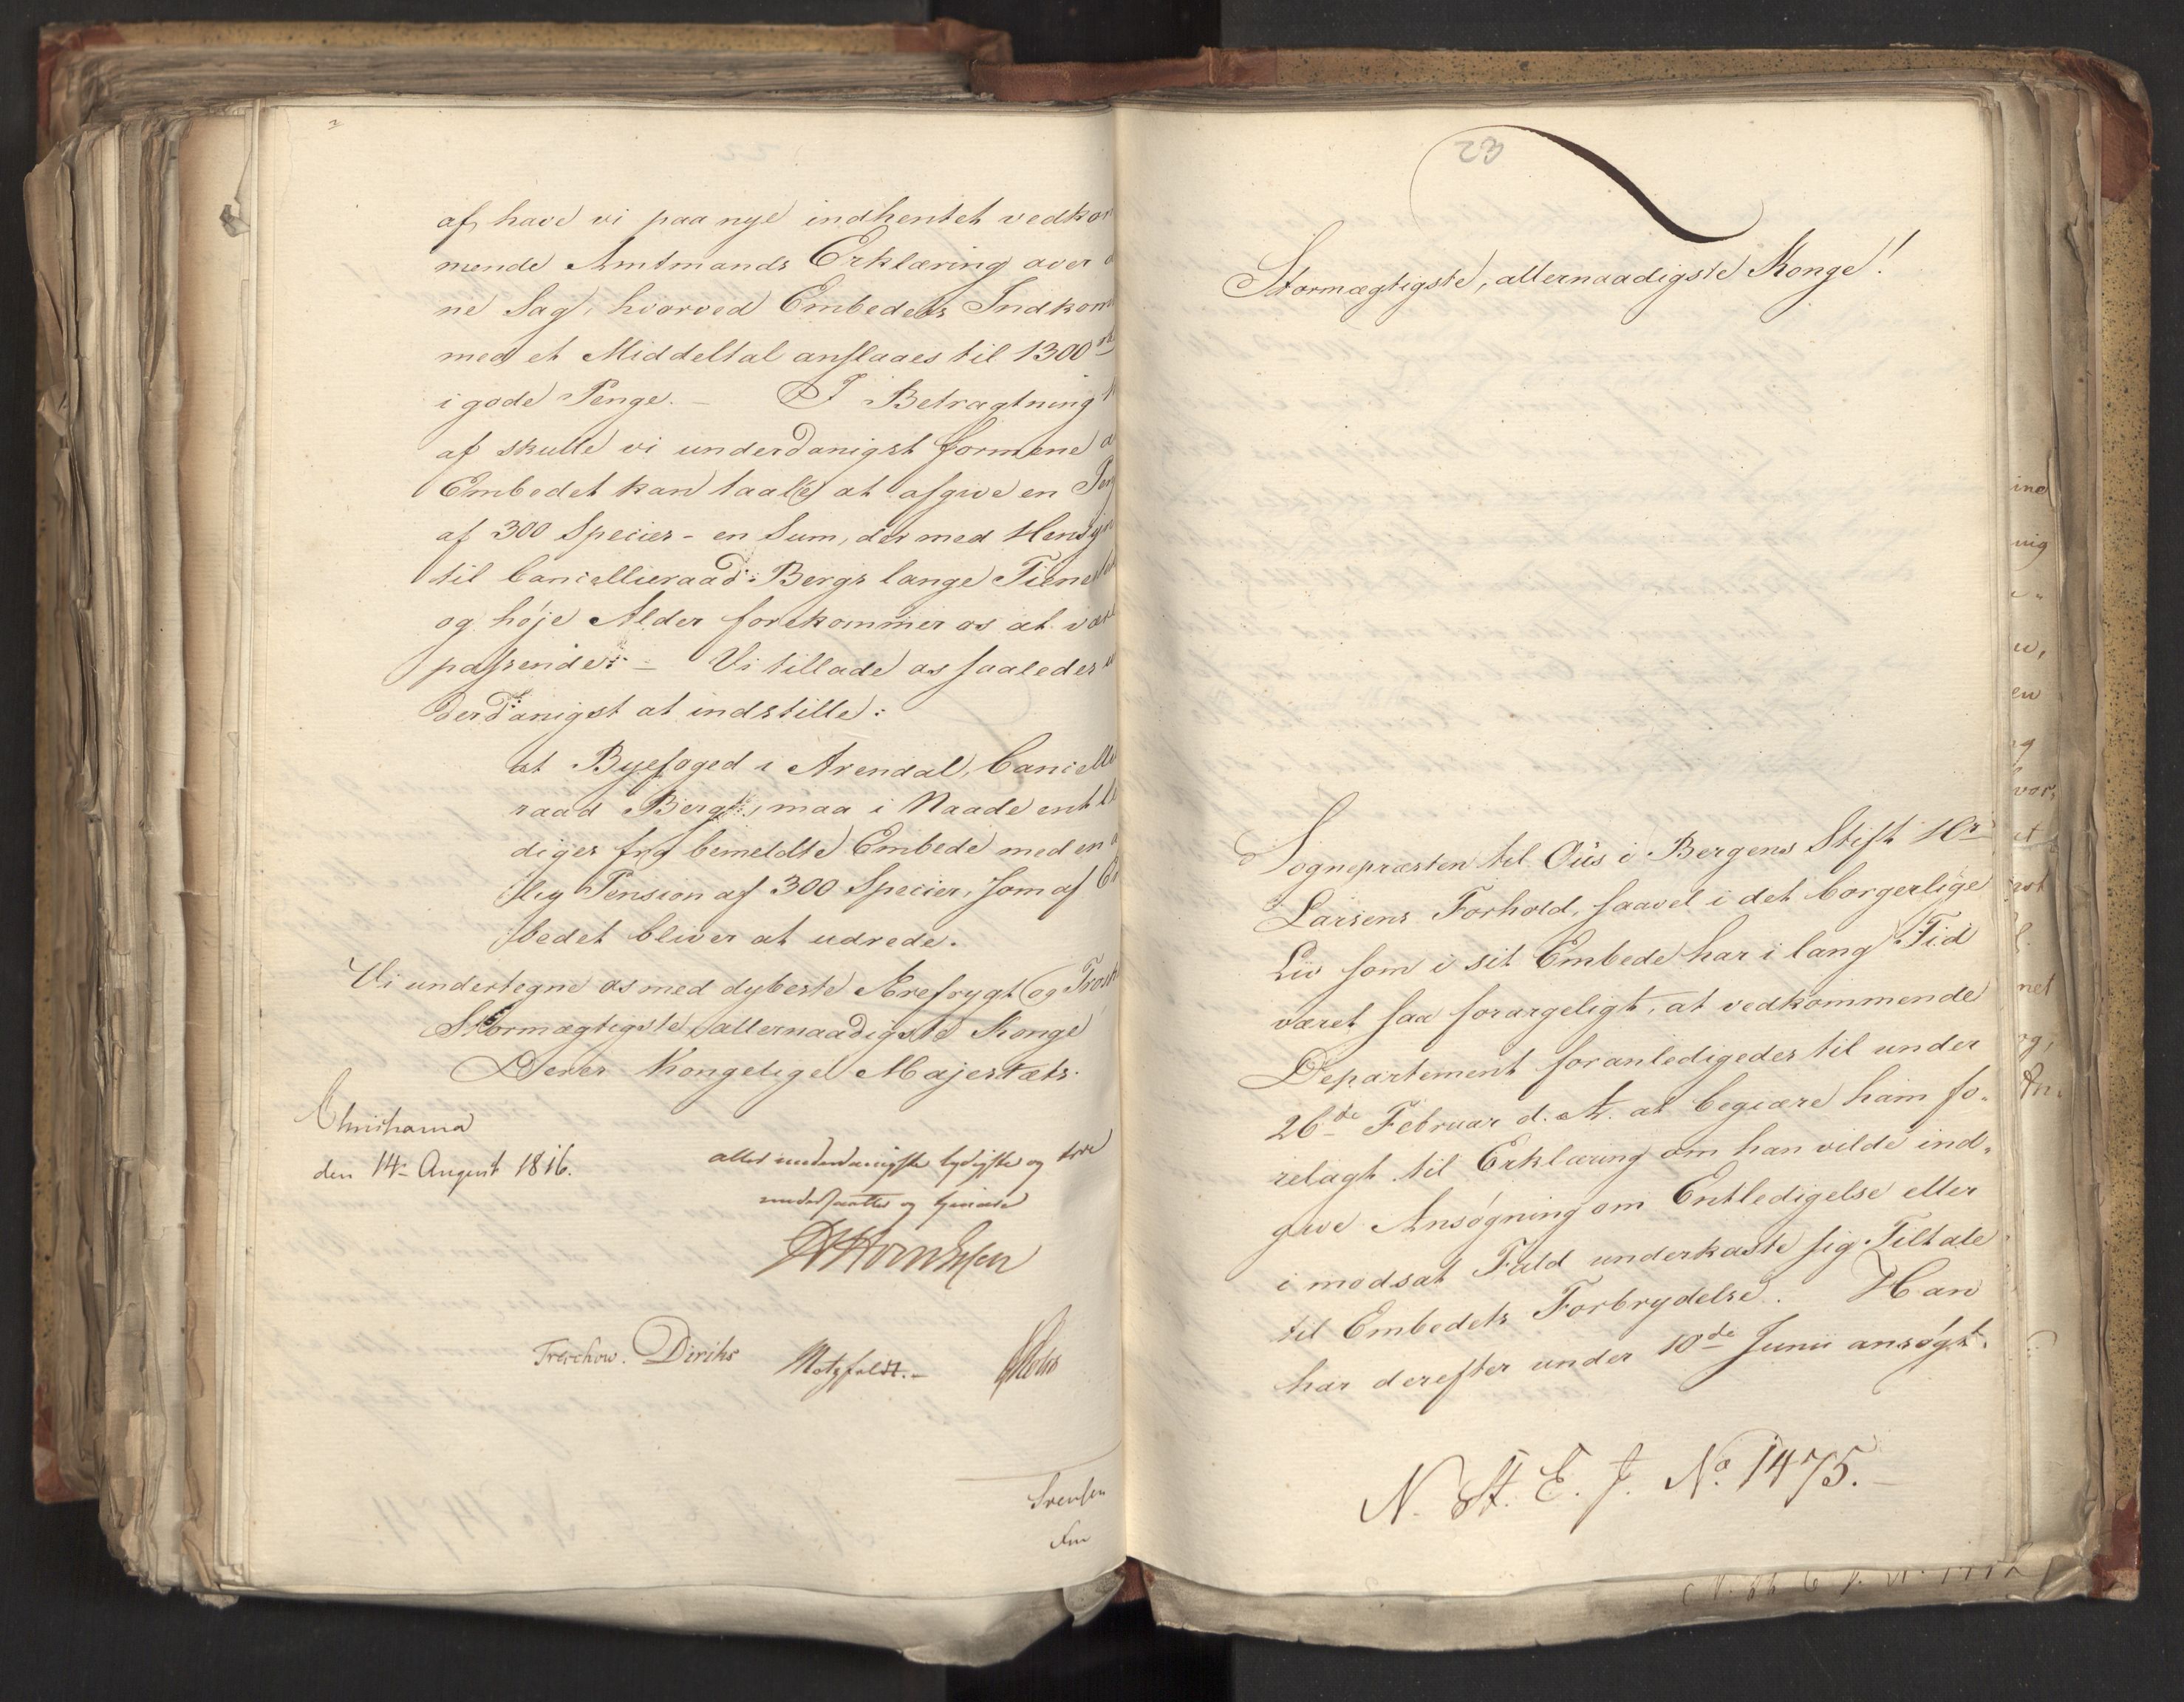 af, have vi paa nye indhentet vedkom
mende Amtmands Erklæring over
ne Sag, hvorved Embedets Indkom
med et Middeltal anslaaes til 1300
i gode Penge. – I Betragtning
af skulle vi underdanigst formene
Embedet kan taale at afgive en Pen
af 300 Species – en Sum, der med Hensyn
til Cancellieraad Bergs lange Tienes
og høje Alder forekommer os at være
passende. – Vi tillade os saaledes
derdanigst at indstille:
at Byefoged i Arendal, Cancellie
raad Berg, maa i Naade entle
diges fra bemeldte Embede med en
lig Pension af 300 Species, som af
bedet bliver at udrede.
Vi undertegne os med dybeste Ærefrygt og
Stormægtigste, allernaadigste Konge
Deres Kongelige Majestæts
Christiania
den 14 August 1816.
allerunderdanigste lydigste og troe
undersaatter og tjenere
Treschow. Diriks Motzfeldt.–
22
Stormægtigste, allernaadigste Konge!
Sognepræsten til Ous i Bergens Stift Hr
Larsens Forhold, saavel i det borgerlige
Liv som i sit Embede har i lang Tid
været saa forargeligt, at vedkommende
Departement foranledigedes til under
26de Februar d. A. at begiære ham fo-
relagt til Erklæring om han vilde ind-
give Ansøgning om Entledigelse eller
i modsat Fald underkaste sig Tiltale
til Embedets Forbrydelse. Han
har derefter under 10de Junii ansøgt
N. St. E. J. No. 1475.–